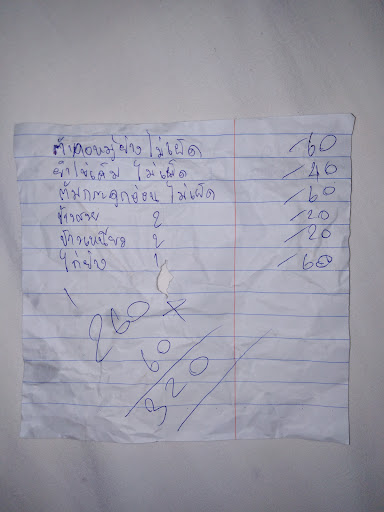 ตำคอหมูย่าง ไม่เผ็ด /60
ยำไข่เค็ม ไม่เผ็ด /40
ต้มกระดูกอ่อน ไม่เผ็ด /60
ข้าวสวย 2 /20
ข้าวเหนียว 2 /20
ไก่ย่าง 1 /60
260 +
60
320